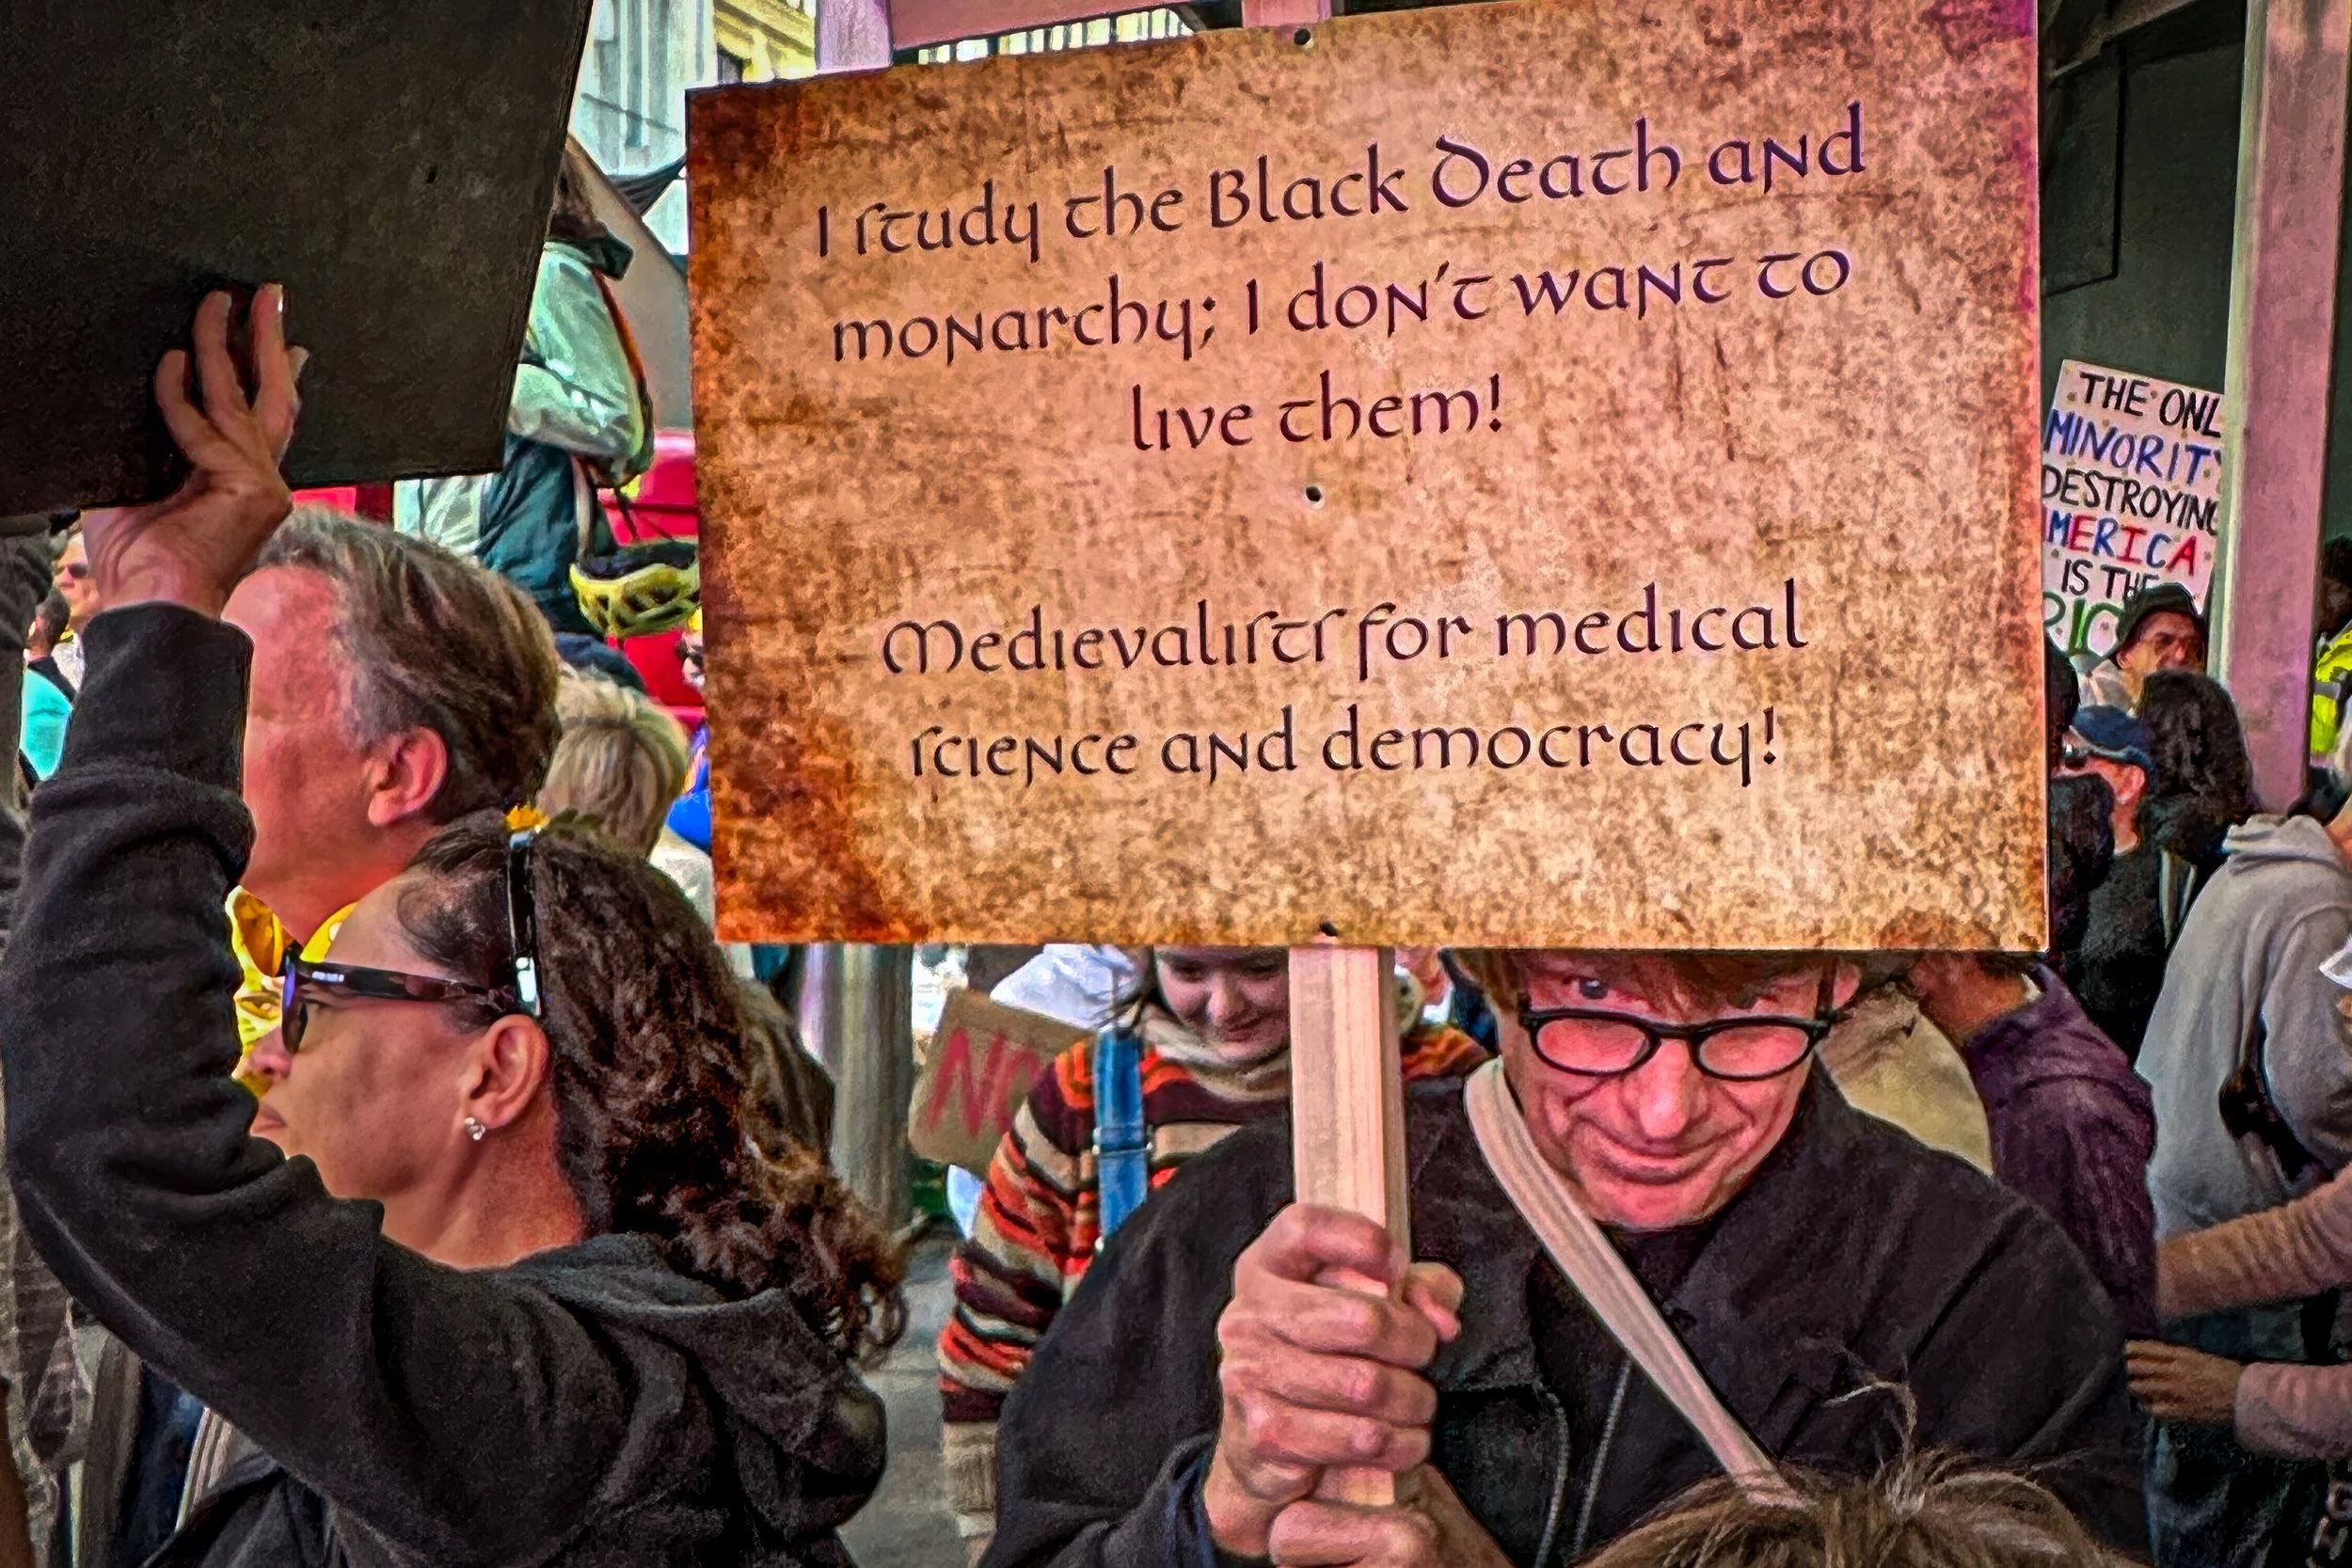 I study the Black Death and
monarchy; I don't want to
live them!
Medievalists for medical
science and democracy!
THE ONL
MINORIT
DESTROYING
MERICA
IS THE
RIC
NO